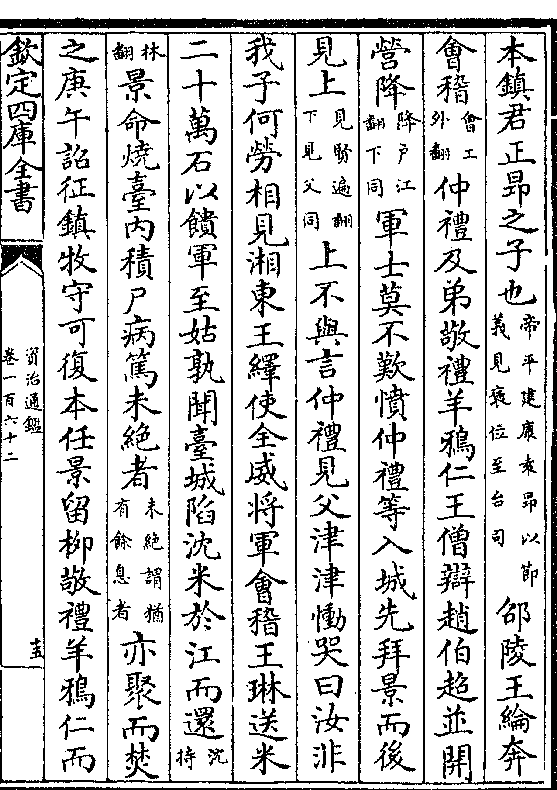 本鎮君正昻之子也帝平建康袁昻以節義見襃位至台司邵陵王綸奔
會稽會工外翻仲禮及弟敬禮羊鴉仁王僧辯趙伯超並開
營降降户江翻下同軍士莫不歎憤仲禮等入城先拜景而後
見上見賢遍翻下見父同上不與言仲禮見父津津慟哭曰汝非
我子何勞相見湘東王繹使全威將軍會稽王琳送米
二十萬石以饋軍至姑孰聞臺城陷沈米於江而還沈持
林翻景命燒臺内積尸病篤未絶者未絶謂猶有餘息者亦聚而焚
之庚午詔征鎮牧守可復本任景留柳敬禮羊鴉仁而
欽定四庫全書
資治通鑑
卷一百六十二
十五